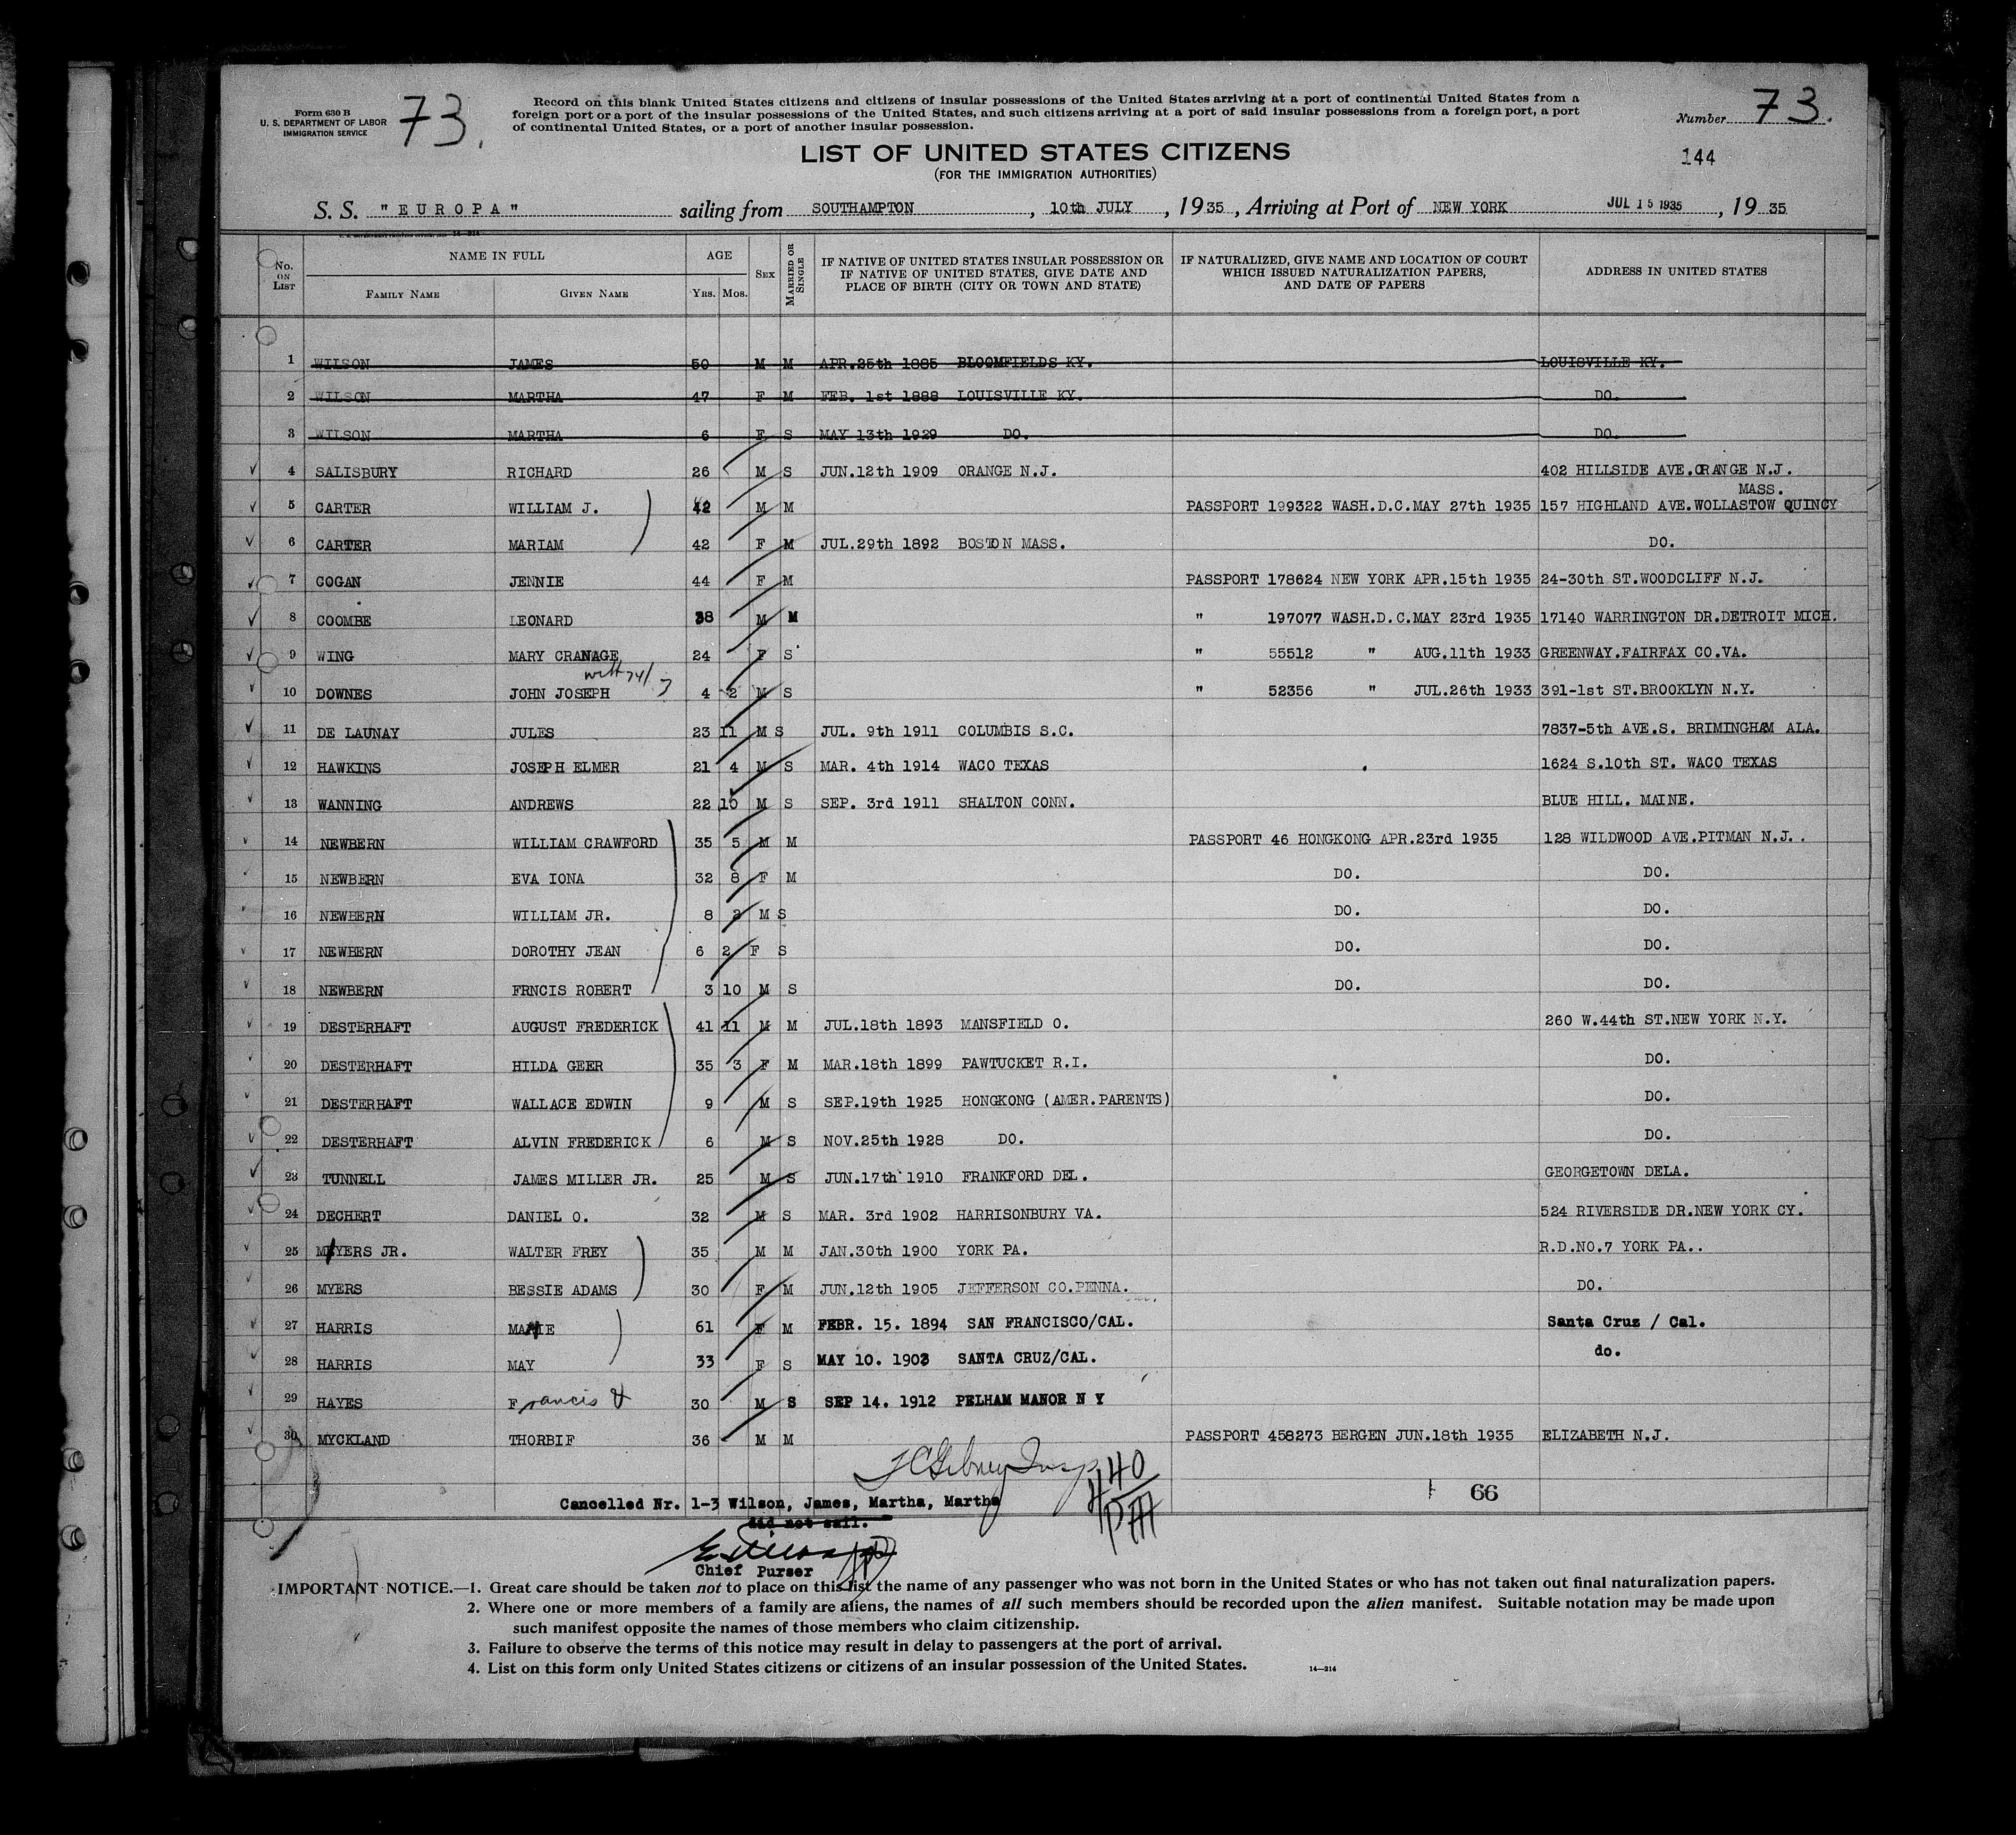 Form 630 B
U. S. DEPARTMENT OF LABOR
IMMIGRATION SERVICE
73.
Record on this blank United States citizens and citizens of insular possessions of the United States arriving at a port of continental United States from a
foreign port or a port of the insular possessions of the United States, and such citizens arriving at a port of said insular possessions from a foreign port, a port
of continental United States, or a port of another insular possession.
Number 73.
144
LIST OF UNITED STATES CITIZENS
(FOR THE IMMIGRATION AUTHORITIES)
S. S. "EUROPA" sailing from SOUTHAMPTON, 10th JULY, 1935, Arriving at Port of NEW YORK JUL 15 1935, 1935
No. ON LIST NAME IN FULL AGE SEX MARRIED OR SINGLE IF NATIVE OF UNITED STATES INSULAR POSSESSION OR IF NATIVE OF UNITED STATES, GIVE DATE AND PLACE OF BIRTH (CITY OR TOWN AND STATE) IF NATURALIZED, GIVE NAME AND LOCATION OF COURT WHICH ISSUED NATURALIZATION PAPERS, AND DATE OF PAPERS ADDRESS IN UNITED STATES
FAMILY NAME GIVEN NAME YRS. MOS.
1 WILSON JAMES 50 M M APR.25th 1885 BLOOMFIELDS KY. LOUISVILLE KY.
2 WILSON MARTHA 47 F M FEB. 1st 1888 LOUISVILLE KY. DO.
3 WILSON MARTHA 6 F S MAY 13th 1929 DO. DO.
4 SALISBURY RICHARD 26 M S JUN.12th 1909 ORANGE N.J. 402 HILLSIDE AVE.ORANGE N.J.
MASS.
5 CARTER WILLIAM J. 42 M M PASSPORT 199322 WASH.D.C.MAY 27th 1935 157 HIGHLAND AVE.WOLLASTOW QUINCY
6 CARTER MARIAM 42 F M JUL.29th 1892 BOSTON MASS. DO.
7 COGAN JENNIE 44 F M PASSPORT 178624 NEW YORK APR.15th 1935 24-30th ST.WOODCLIFF N.J.
8 COOMBE LEONARD 38 M M " 197077 WASH.D.C.MAY 23rd 1935 17140 WARRINGTON DR.DETROIT MICH.
9 WING MARY CRANAGE 24 F S " 55512 " AUG.11th 1933 GREENWAY.FAIRFAX CO.VA.
with 74/3
10 DOWNES JOHN JOSEPH 4 2 M S " 52356 " JUL.26th 1933 391-1st ST.BROOKLYN N.Y.
11 DE LAUNAY JULES 23 11 M S JUL. 9th 1911 COLUMBIS S.C. 7837-5th AVE.S. BRIMINGHAM ALA.
12 HAWKINS JOSEPH ELMER 21 4 M S MAR. 4th 1914 WACO TEXAS 1624 S.10th ST. WACO TEXAS
13 WANNING ANDREWS 22 10 M S SEP. 3rd 1911 SHALTON CONN. BLUE HILL. MAINE.
14 NEWBERN WILLIAM CRAWFORD 35 5 M M PASSPORT 46 HONGKONG APR.23rd 1935 128 WILDWOOD AVE.PITMAN N.J..
15 NEWBERN EVA IONA 32 8 F M DO. DO.
16 NEWBERN WILLIAM JR. 8 2 M S DO. DO.
17 NEWBERN DOROTHY JEAN 6 2 F S DO. DO.
18 NEWBERN FRNCIS ROBERT 3 10 M S DO. DO.
19 DESTERHAFT AUGUST FREDERICK 41 11 M M JUL.18th 1893 MANSFIELD O. 260 W.44th ST.NEW YORK N.Y.
20 DESTERHAFT HILDA GEER 35 3 F M MAR.18th 1899 PAWTUCKET R.I. DO.
21 DESTERHAFT WALLACE EDWIN 9 M S SEP.19th 1925 HONGKONG (AMER.PARENTS) DO.
22 DESTERHAFT ALVIN FREDERICK 6 M S NOV.25th 1928 DO. DO.
23 TUNNELL JAMES MILLER JR. 25 M S JUN.17th 1910 FRANKFORD DEL. GEORGETOWN DELA.
24 DECHERT DANIEL O. 32 M S MAR. 3rd 1902 HARRISONBURY VA. 524 RIVERSIDE DR.NEW YORK CY.
25 MYERS JR. WALTER FREY 35 M M JAN.30th 1900 YORK PA. R.D.NO.7 YORK PA..
26 MYERS BESSIE ADAMS 30 F M JUN.12th 1905 JEFFERSON CO.PENNA. DO.
27 HARRIS MAMIE 61 F M FEBR. 15. 1894 SAN FRANCISCO/CAL. Santa Cruz / Cal.
28 HARRIS MAY 33 F S MAY 10. 1903 SANTA CRUZ/CAL. do.
29 HAYES Francis 30 M S SEP 14. 1912 PELHAM MANOR N Y
30 MYCKLAND THORBIF 36 M M PASSPORT 458273 BERGEN JUN.18th 1935 ELIZABETH N.J.
440
66
Cancelled Nr. 1-3 Wilson, James, Martha, Martha
did not sail.
Chief Purser
IMPORTANT NOTICE.—1. Great care should be taken not to place on this list the name of any passenger who was not born in the United States or who has not taken out final naturalization papers.
2. Where one or more members of a family are aliens, the names of all such members should be recorded upon the alien manifest. Suitable notation may be made upon
such manifest opposite the names of those members who claim citizenship.
3. Failure to observe the terms of this notice may result in delay to passengers at the port of arrival.
4. List on this form only United States citizens or citizens of an insular possession of the United States.
14—214